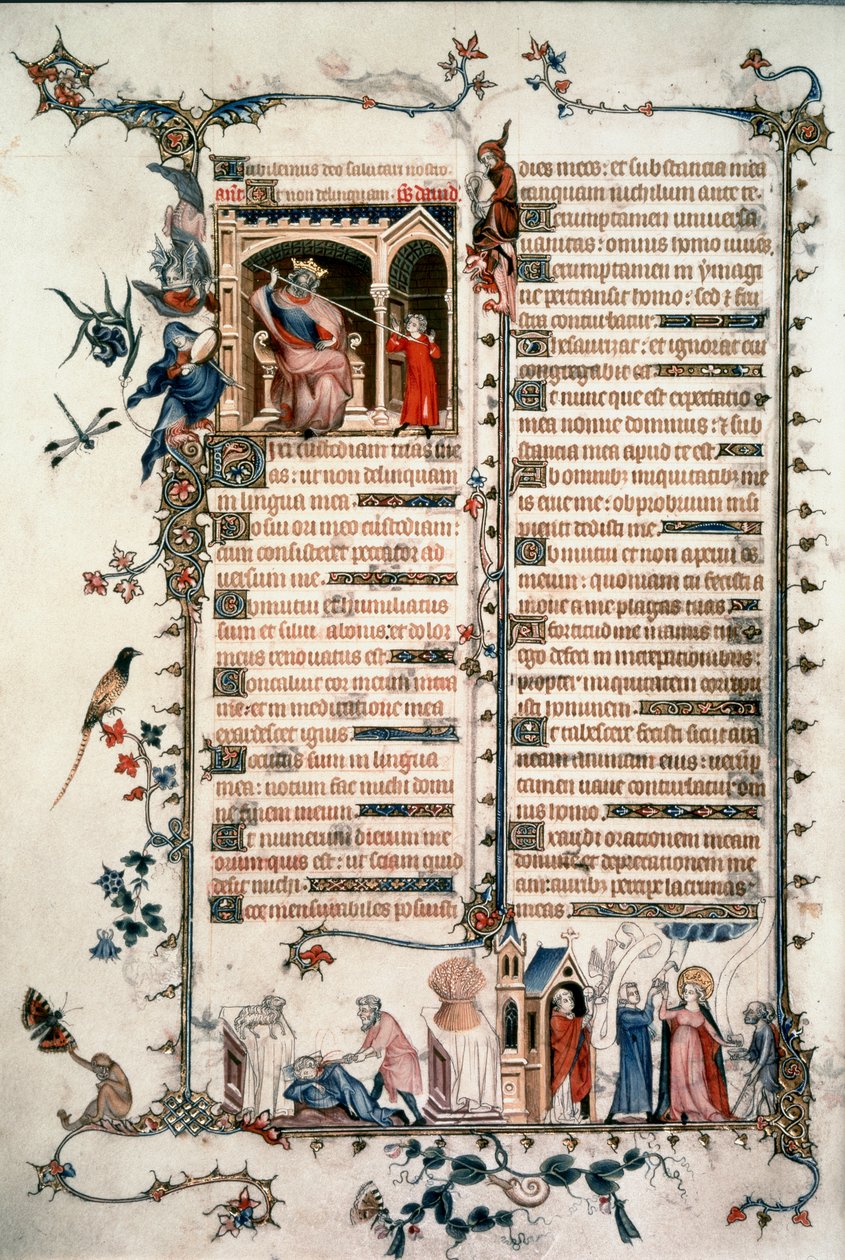 Iubilemus deo salutari nostro.
ant. Ut non delinquam. ps dauid.
Dixi custodiam uias me
as: ut non delinquam
in lingua mea.
Posui ori meo custodiam:
cum consisteret peccator ad
uersum me.
Obmutui et humiliatus
sum et silui a bonis: et dolor
meus renouatus est.
Concaluit cor meum intra
me: et in meditatione mea
exardescet ignis.
Locutus sum in lingua
mea: notum fac michi domi
ne finem meum.
Et numerum dierum me
orum quis est: ut sciam quid
desit michi.
Ecce mensurabiles posuisti
dies meos: et substancia mea
tanquam nichilum ante te.
Uerumptamen uniuersa
uanitas: omnis homo uiuens.
Uerumptamen in ymagi
ne pertransit homo: sed ⁊ frus
tra conturbatur.
Thesaurizat: et ignorat cui
congregabit ea.
Et nunc que est expectatio
mea nonne dominus: ⁊ sub
stancia mea apud te est.
Ab omnibꝫ iniquitatibꝫ me
is erue me: obprobrium insi
pienti dedisti me.
Obmutui et non aperui os
meum: quoniam tu fecisti a
moue a me plagas tuas.
A fortitudine manus tue
ego defeci in increpationibus:
propter iniquitatem corripu
isti hominem.
Et tabescere fecisti sicut ara
neam animam eius: uerūp
tamen uane conturbatur om
nis homo.
Exaudi orationem meam
domine et deprecationem me
am: auribꝫ percipe lacrimas
meas.